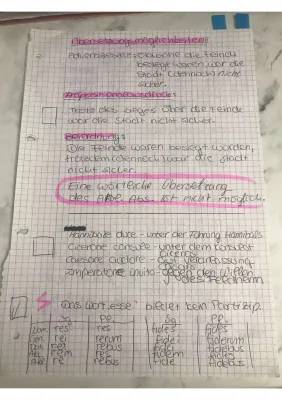 Übersetzungsmöglichkeiten:
Adverbialsatz: Obwohl die Feinde
besiegt waren war die
Stadt (dennoch) nicht
sicher.
Trotz des Sieges über die Feinde
war die Stadt nicht sicher.
Beiordnung:
Die Feinde waren besiegt worden,
trotzdem/dennoch war die Stadt
nicht sicher.
Eine wörtliche Übersetzung
des Abl. Abs. ist nicht möglich.
Hannibale duce - unter der Führung Hannibals
Cicerone consule - unter dem Konsulat
Ciceros
Caesare auctore - auf Veranlassung
imperatore invito - gegen den Willen
des Feldherrn
Das Wort "esse" bildet kein Partizip.
Sg. Pl. Sg. Pl.
Nom. res res fides fides
Gen. rei rerum fidei fiderum
Dat. rei rebus fidei fidebus
Akk. rem res fidem fides
Abl. re rebus fide fidebus